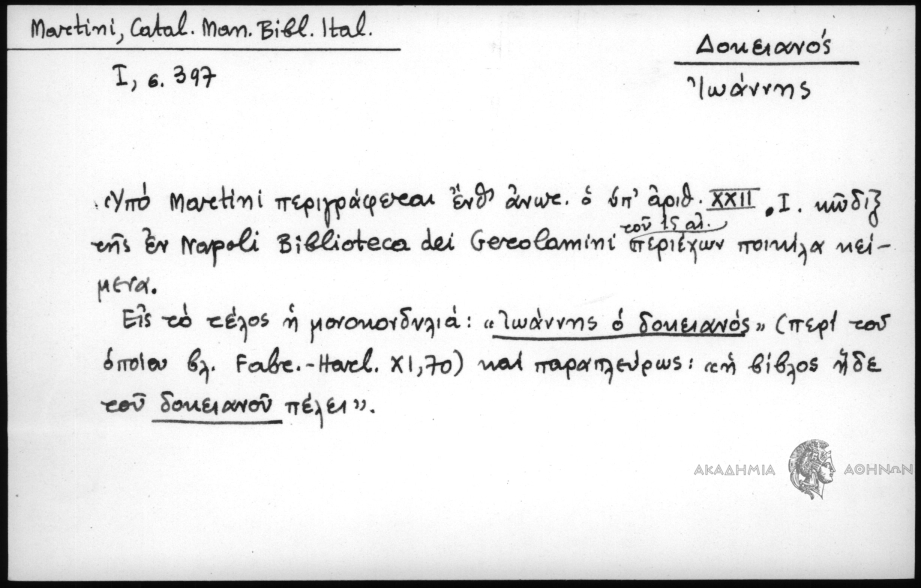 Martini, Catal. Man. Bibl. Ital.
I, σ. 397
Δοκειανός
Ἰωάννης
Ὑπό Martini περιγράφεται ἔνθ' ἄνωτ. ὁ ὑπ' ἀριθ. XXII. I. κῶδιξ
τῆς ἐν Napoli Biblioteca dei Gerolamini τοῦ 15 αἰ. περιέχων ποικίλα κεί-
μενα.
Εἰς τό τέλος ἡ μονοκονδυλιά: «Ἰωάννης ὁ δοκειανός» (περί τοῦ
ὁποίου βλ. Fabr.-Harl. XI, 70) καί παραπλεύρως: «ἡ βίβλος ἥδε
τοῦ δοκειανοῦ πέλει».
ΑΚΑΔΗΜΙΑ ΑΘΗΝΩΝ